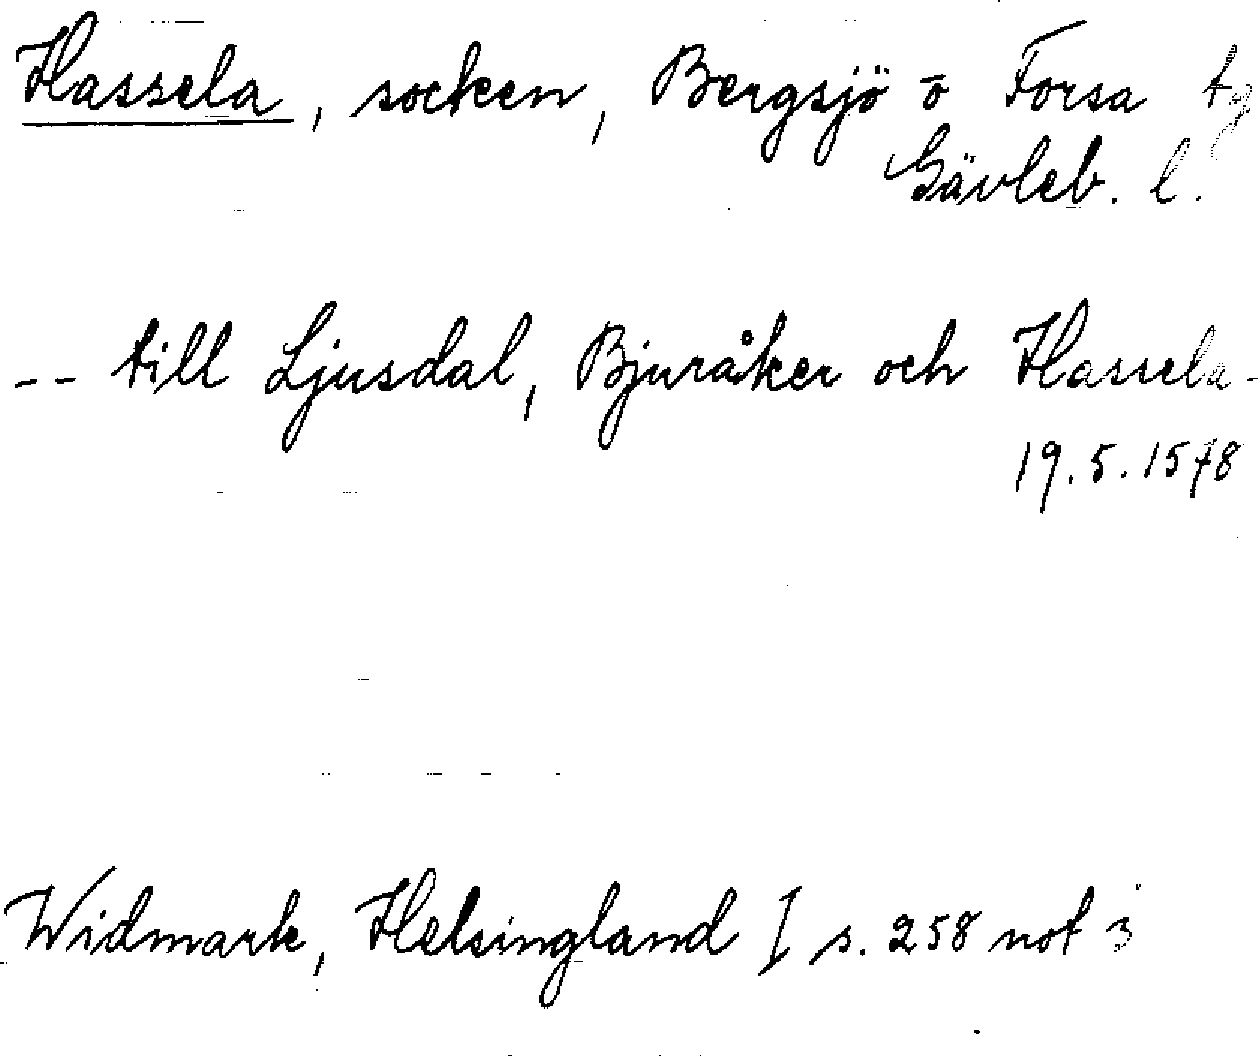 Hassela, socken, Bergsjö o Forsa tg
Gävleb. l.
-- till Ljusdal, Bjuråker och Hassela -
19.5.1578
Widmark, Helsingland I s. 258 not